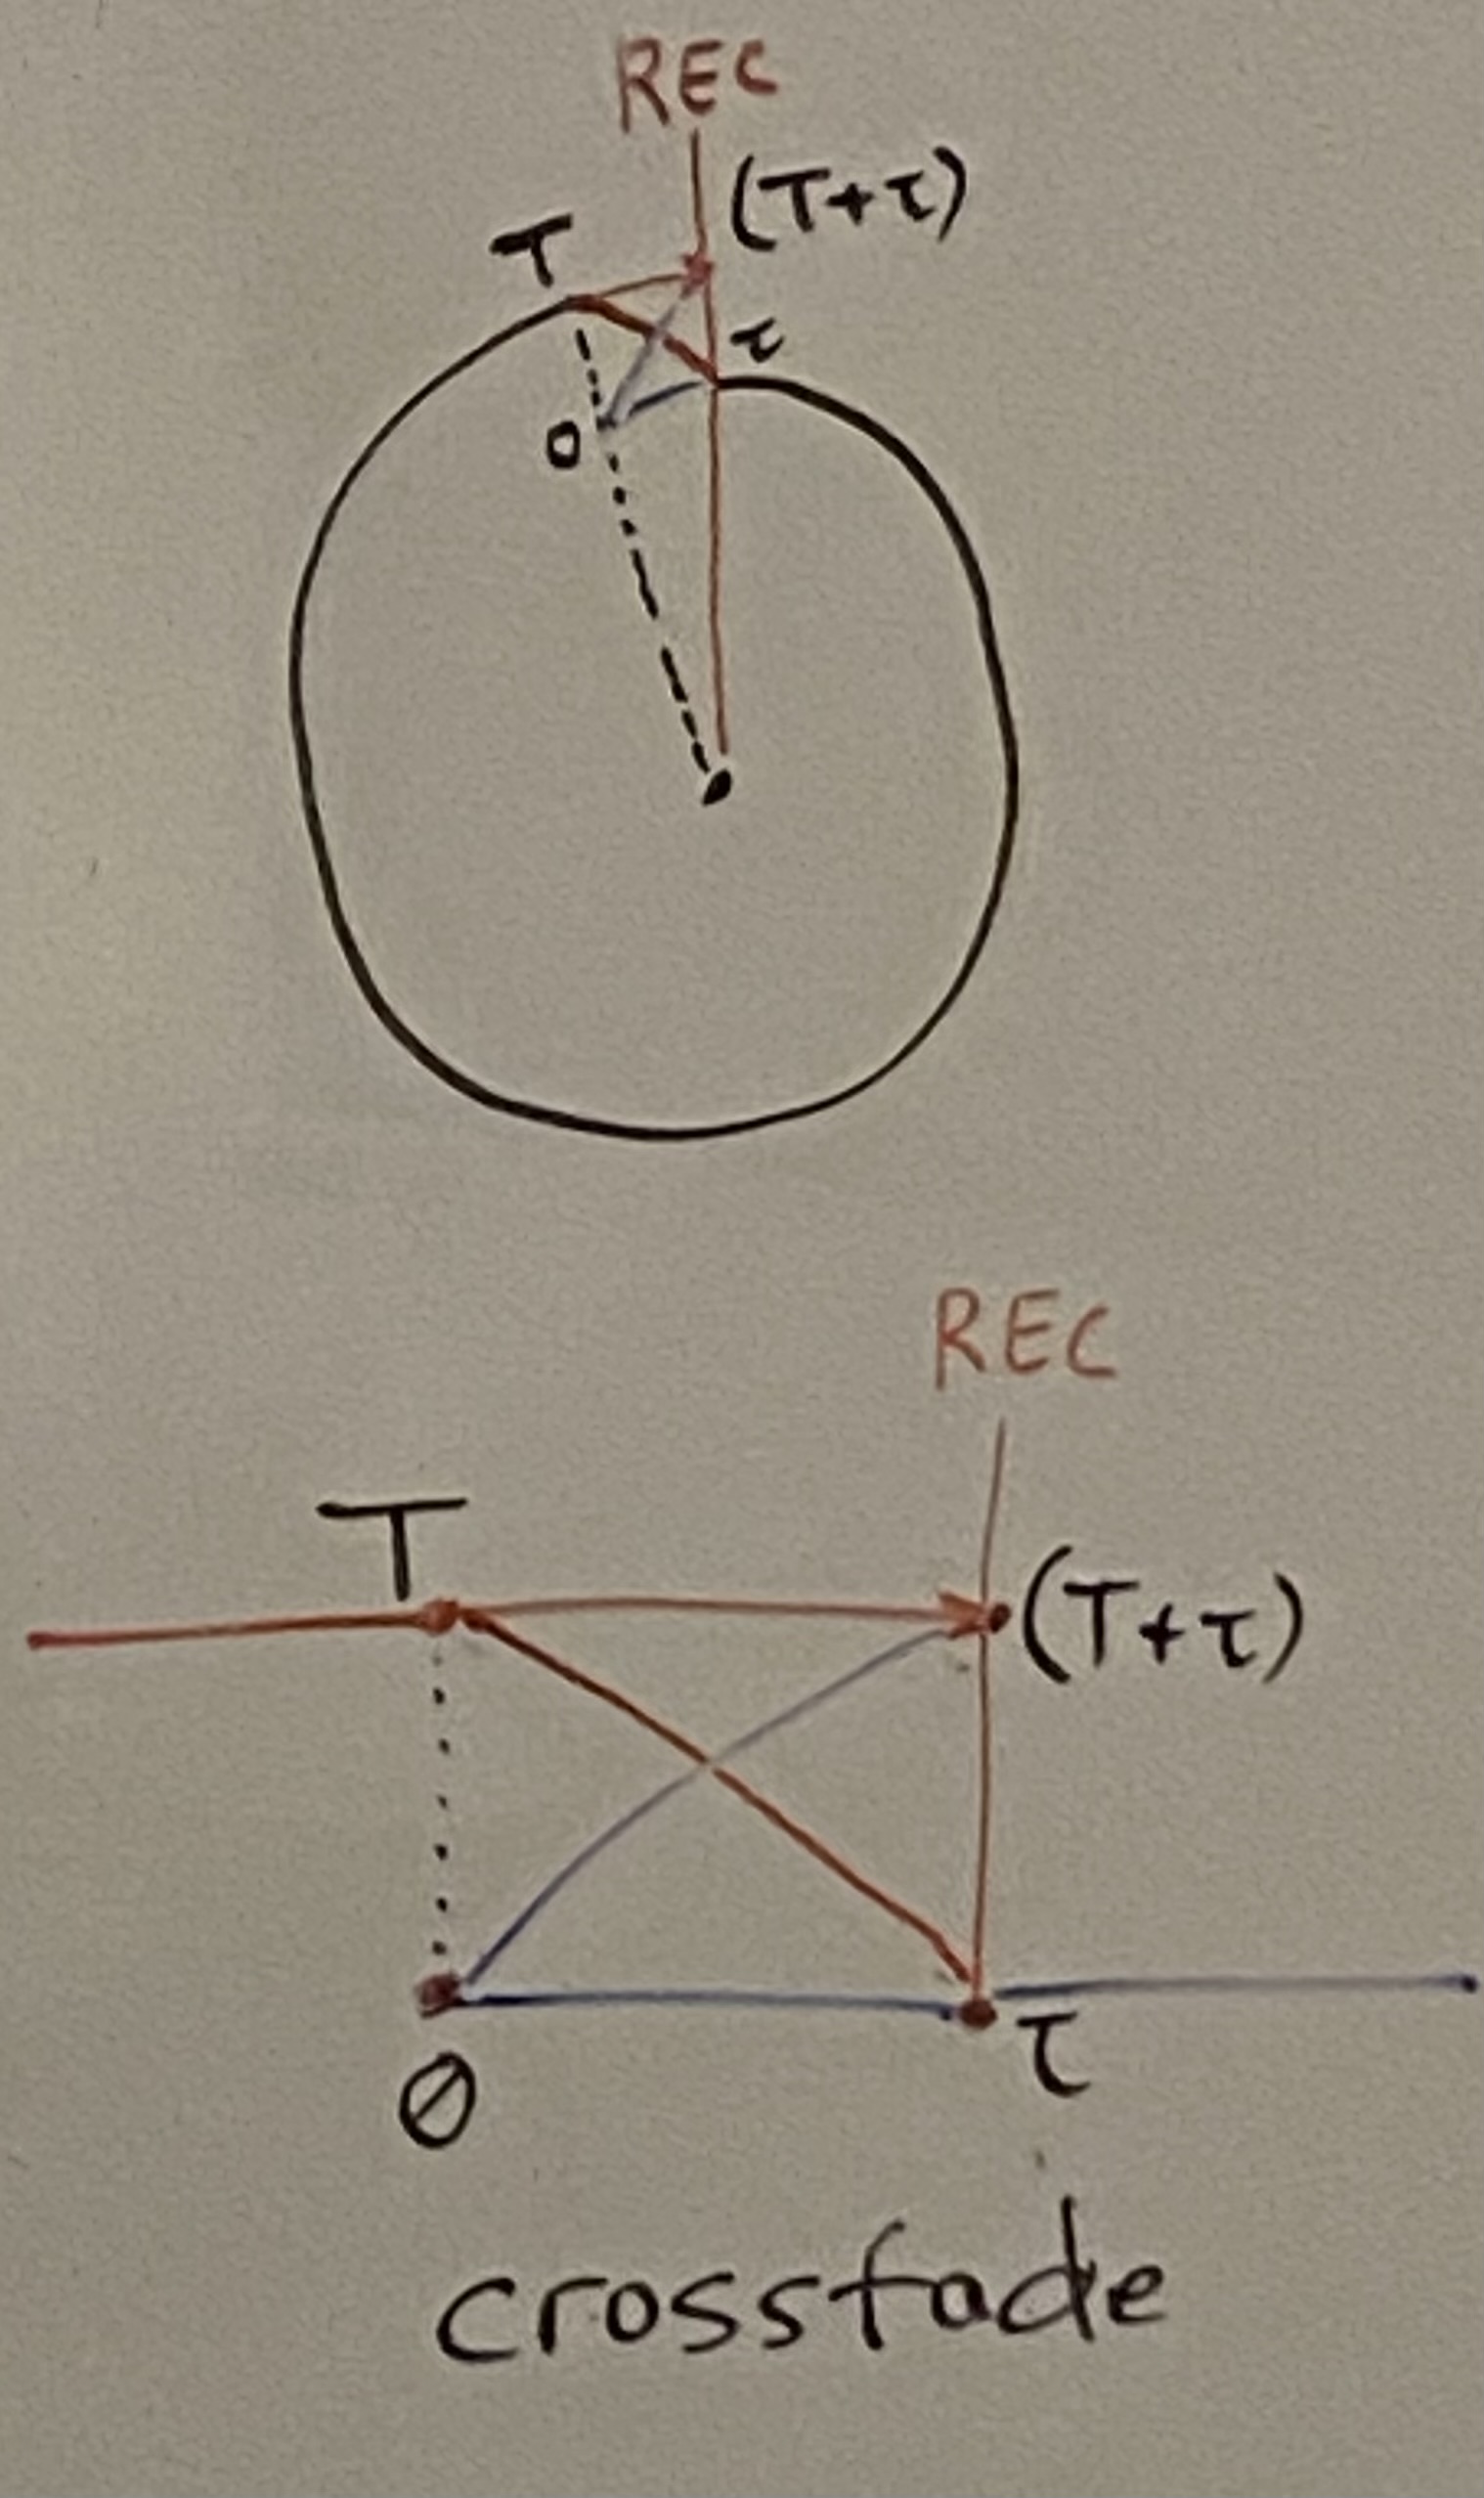 REC
(T+τ)
T
τ
0
REC
T
(T+τ)
0
τ
crossfade